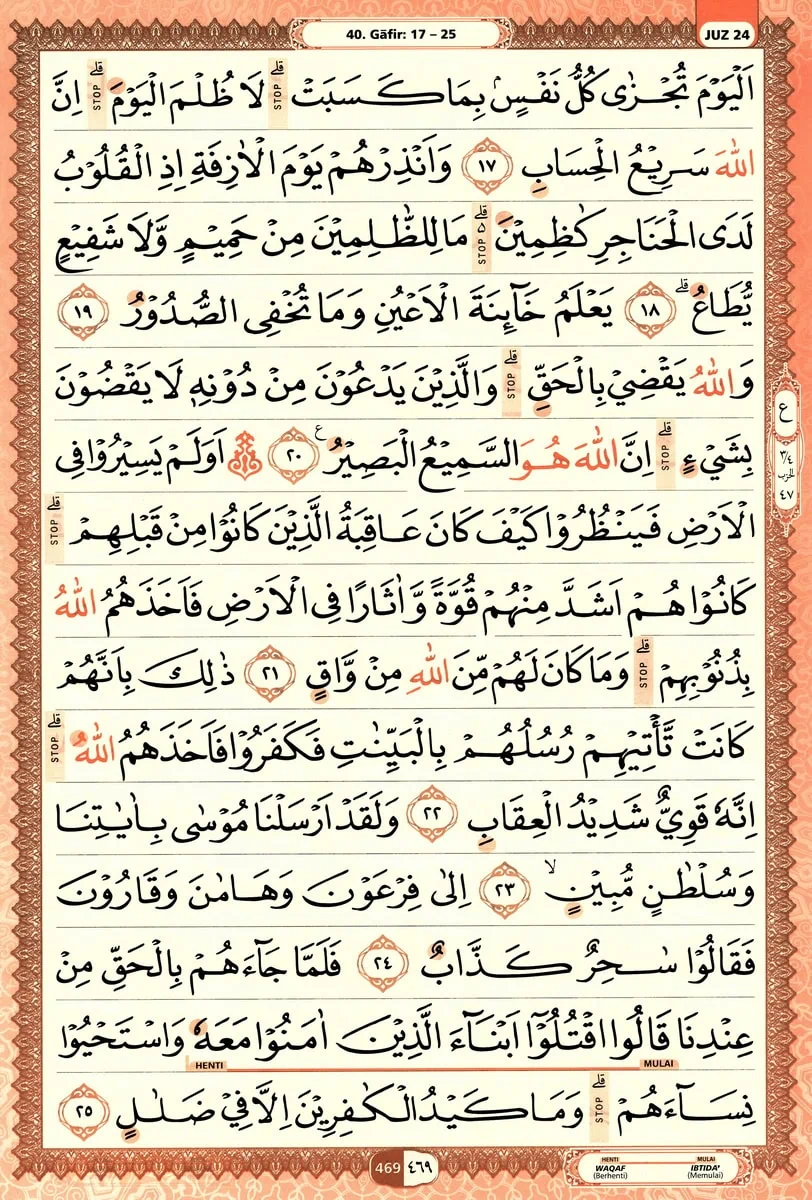 40. Gāfir: 17 – 25
JUZ 24
اَلْيَوْمَ تُجْزٰى كُلُّ نَفْسٍۢ بِمَا كَسَبَتْ ۗ لَا ظُلْمَ الْيَوْمَ ۗ اِنَّ
اللّٰهَ سَرِيْعُ الْحِسَابِ ١٧ وَاَنْذِرْهُمْ يَوْمَ الْاٰزِفَةِ اِذِ الْقُلُوْبُ
لَدَى الْحَنَاجِرِ كٰظِمِيْنَ ەۗ مَا لِلظّٰلِمِيْنَ مِنْ حَمِيْمٍ وَّلَا شَفِيْعٍ
يُّطَاعُۗ ١٨ يَعْلَمُ خَاۤىِٕنَةَ الْاَعْيُنِ وَمَا تُخْفِى الصُّدُوْرُ ١٩
وَاللّٰهُ يَقْضِيْ بِالْحَقِّ ۗ وَالَّذِيْنَ يَدْعُوْنَ مِنْ دُوْنِهٖ لَا يَقْضُوْنَ
بِشَيْءٍ ۗ اِنَّ اللّٰهَ هُوَ السَّمِيْعُ الْبَصِيْرُ ࣖ ٢٠ ۞ اَوَلَمْ يَسِيْرُوْا فِى
الْاَرْضِ فَيَنْظُرُوْا كَيْفَ كَانَ عَاقِبَةُ الَّذِيْنَ كَانُوْا مِنْ قَبْلِهِمْ ۗ
كَانُوْا هُمْ اَشَدَّ مِنْهُمْ قُوَّةً وَّاٰثَارًا فِى الْاَرْضِ فَاَخَذَهُمُ اللّٰهُ
بِذُنُوْبِهِمْ ۗ وَمَا كَانَ لَهُمْ مِّنَ اللّٰهِ مِنْ وَّاقٍ ٢١ ذٰلِكَ بِاَنَّهُمْ
كَانَتْ تَّأْتِيْهِمْ رُسُلُهُمْ بِالْبَيِّنٰتِ فَكَفَرُوْا فَاَخَذَهُمُ اللّٰهُ ۗ
اِنَّهٗ قَوِيٌّ شَدِيْدُ الْعِقَابِ ٢٢ وَلَقَدْ اَرْسَلْنَا مُوْسٰى بِاٰيٰتِنَا
وَسُلْطٰنٍ مُّبِيْنٍۙ ٢٣ اِلٰى فِرْعَوْنَ وَهَامٰنَ وَقَارُوْنَ
فَقَالُوْا سٰحِرٌ كَذَّابٌ ٢٤ فَلَمَّا جَاۤءَهُمْ بِالْحَقِّ مِنْ
عِنْدِنَا قَالُوا اقْتُلُوْٓا اَبْنَاۤءَ الَّذِيْنَ اٰمَنُوْا مَعَهٗ وَاسْتَحْيُوْا
MULAI HENTI
نِسَاۤءَهُمْ ۗ وَمَا كَيْدُ الْكٰفِرِيْنَ اِلَّا فِيْ ضَلٰلٍ ٢٥
STOP
STOP
STOP
STOP
STOP
STOP
STOP
STOP
STOP
ع
٣/٤
الحزب
٤٧
469 ٤٦٩
HENTI MULAI
WAQAF IBTIDA'
(Berhenti) (Memulai)